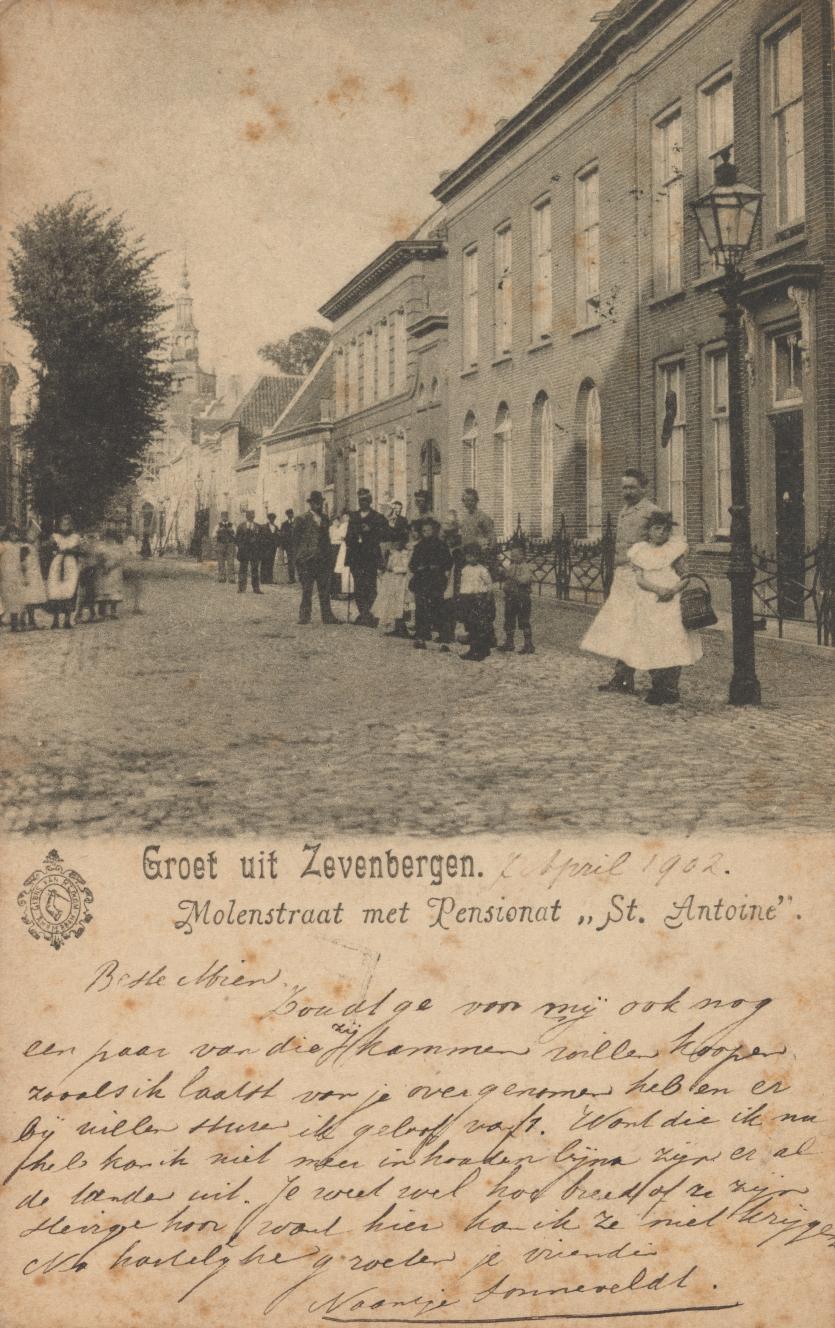 Groet uit Zevenbergen. 7 April 1902.
Molenstraat met Pensionat „St. Antoine".
Beste Mien.
Zoudt ge voor mij ook nog
een paar van die zijkammen willen koopen
zooals ik laatst van je overgenomen heb en er
bij willen sture ik geloof van f1. Want die ik nu
heb kan ik niet meer in houden bijna zijn er al
de tanden uit. Je weet wel hoe breed of ze zijn
stevige hoor want hier kan ik ze niet krijgen
Na hartelijke groeten je vriendin
Naantje Sonneveldt.